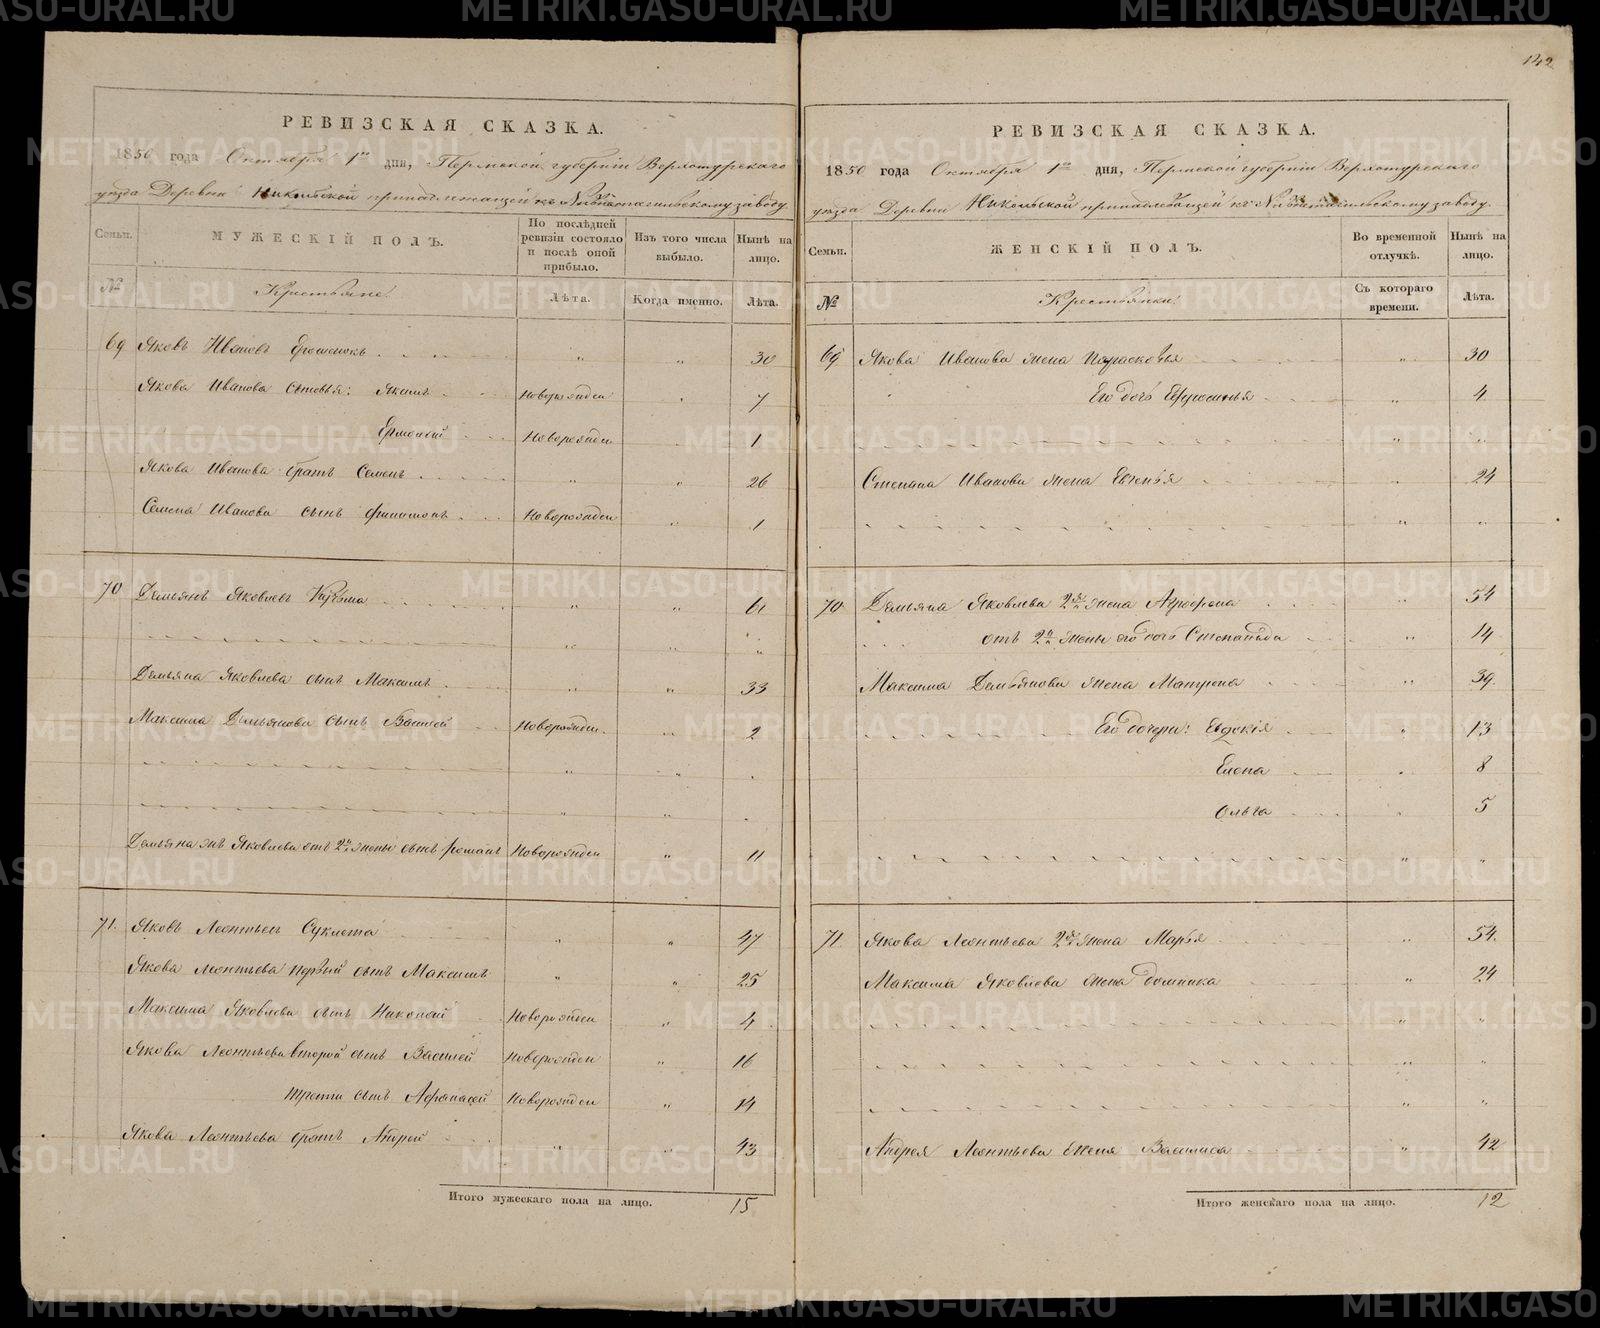 142
РЕВИЗСКАЯ СКАЗКА.
1850 года Октября 1го дня, Пермской губернiи Верхотурскаго
уезда Деревни Никольской принадлежащей къ Нижнетагильскому заводу.
Семьи.
МУЖЕСКIЙ ПОЛЪ.
По послѣдней ревизiи состояло и послѣ оной прибыло.
Изъ того числа выбыло.
Нынѣ на лицо.
№
Крестьяне.
Лѣта.
Когда именно.
Лѣта.
69 Яковъ Ивановъ " " 30
Якова Иванова сыновья: Якимъ Новорожден " 7
Ермолай Новорожден " 1
Якова Иванова братъ Семенъ " " 26
Семена Иванова сынъ Филимонъ Новорожден " 1
70 Демьянъ Яковлевъ Кузьма " " 61
" " "
Демьяна Яковлева сынъ Максимъ " " 33
Максима Демьянова сынъ Василей Новорожден. " 2
" "
" "
Демьяна Яковлева отъ 2й жены сынъ Романъ Новорожден " 11
71. Яковъ Леонтьевъ Суклета " " 47
Якова Леонтьева первый сынъ Максимъ " " 25
Максима Яковлева сынъ Николай Новорожден " 4
Якова Леонтьева второй сынъ Василей Новорожден " 16
трети сынъ Афанасей Новорожден " 14
Якова Леонтьева братъ Андрей " " 43
Итого мужескаго пола на лицо. 15
РЕВИЗСКАЯ СКАЗКА.
1850 года Октября 1го дня, Пермской губернiи Верхотурскаго
уезда Деревни Никольской принадлежащей къ Нижнетагильскому заводу.
Семьи.
ЖЕНСКIЙ ПОЛЪ.
Во временной отлучкѣ.
Нынѣ на лицо.
№
Крестьянки
Съ котораго времени.
Лѣта.
69 Якова Иванова жена Парасковья " 30
Его дочь Ефросинья " 4
" "
Степана Иванова жена Евгенья " 24
" "
70 Демьяна Яковлева 2я жена Агрофена " 54
отъ 2й жены его дочь Степанида " 14
Максима Демьянова жена Матрена " 39.
Его дочери: Евдокiя " 13
Елена " 8
Ольга " 5
" "
71. Якова Леонтьева 2я жена Марья " 54.
Максима Яковлева жена Домника " 24
" "
" "
" "
Андрея Леонтьева жена Василиса " 42
Итого женскаго пола на лицо. 12
METRIKI.GASO-URAL.RU